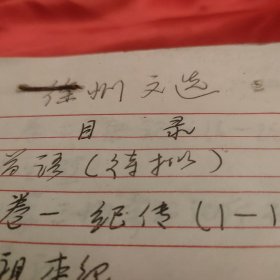 徐州文选
目 录
首语(待拟)
卷一 纪传(1-1
祖本纪